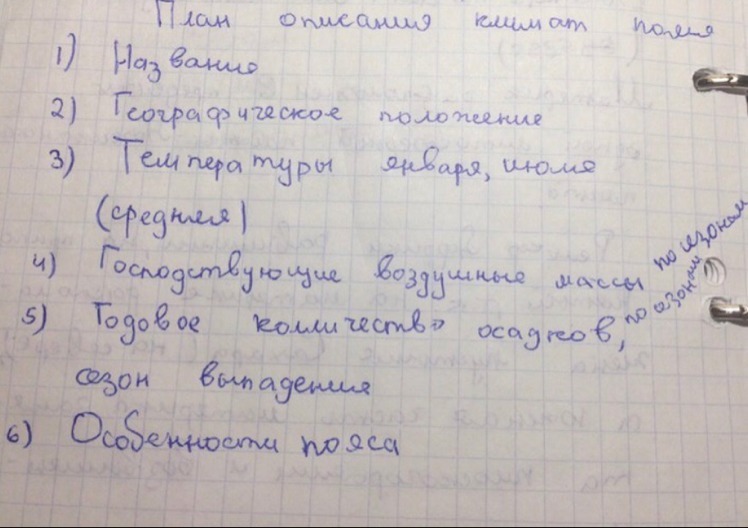 План описания климат пояса
1) Название
2) Географическое положение
3) Температуры января, июля
(средняя)
4) Господствующие воздушные массы по сезонам
5) Годовое колличество осадков, по сезонам
сезон выпадения
6) Особенности пояса